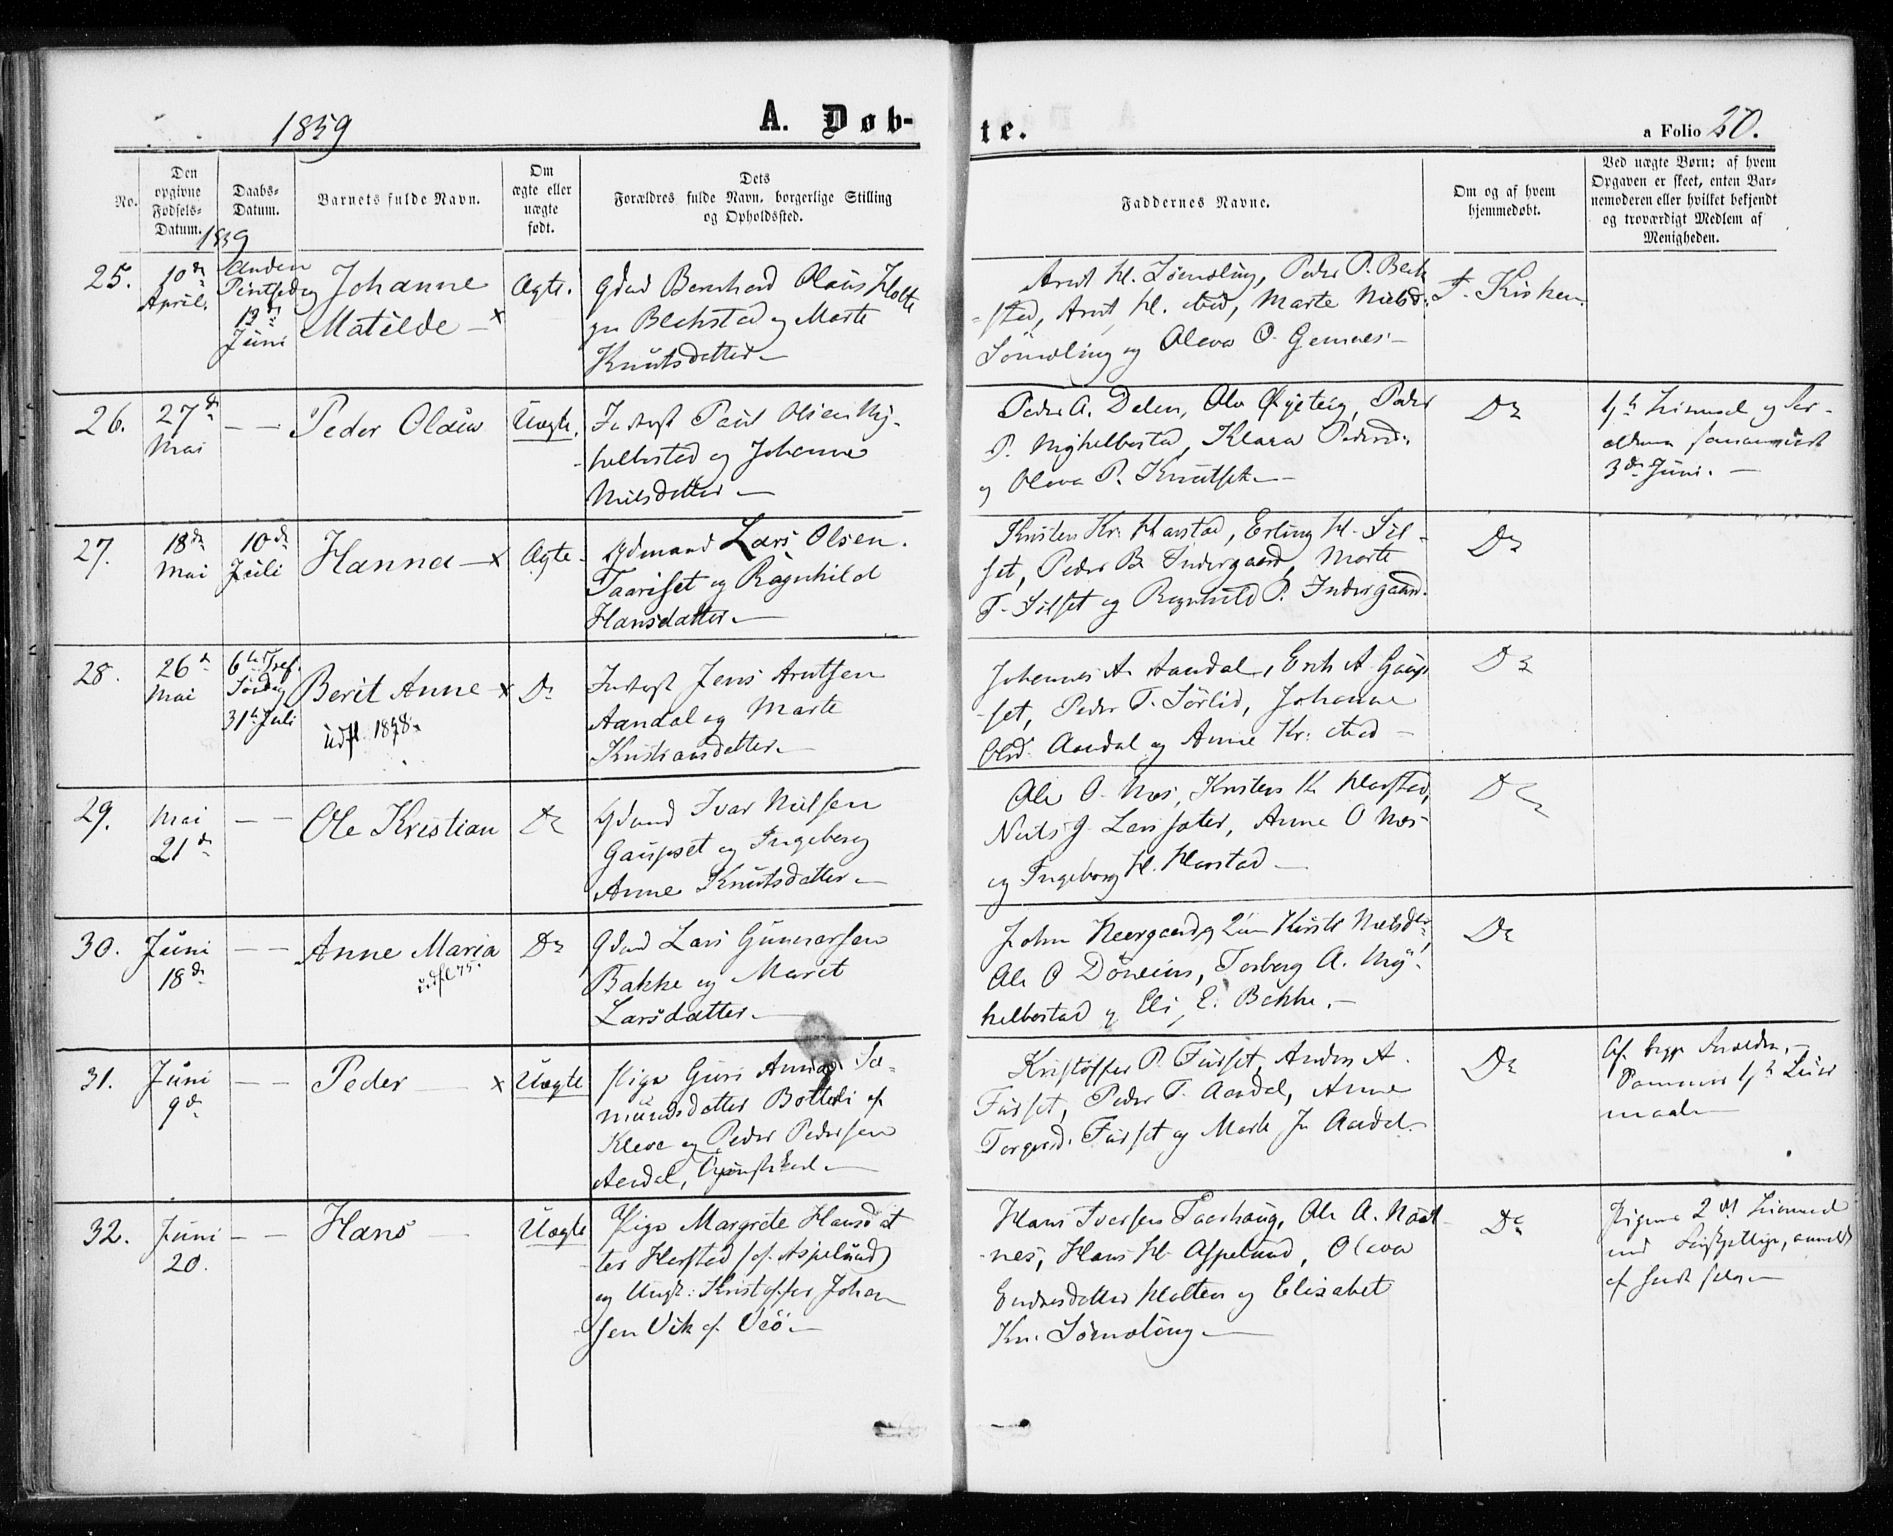 1859
A. Døb-
te.
a Folio 20.
No.
Den
opgivne
Fødsels-
Datum.
Daabs-
Datum.
Barnets fulde Navn.
Om
ægte eller
uægte
født.
Dets
Forældres fulde Navn, borgerlige Stilling
og Opholdssted.
Faddernes Navne.
Om og af hvem
hjemmedøbt.
Ved uægte Børn: af hvem
Opgaven er skeet, enten Bar-
nemoderen eller hvilket bekjendt
og troværdigt Medlem af
Menigheden.
1859
25.
10de
April.
Anden
Pintsedag
12te
Juni
Johanne
Matilde x
Ægte.
Gdmd Bernhard Olaus Holte
paa Blekstad og Marte
Knutsdatter
Arnt H. Sømoling, Peder P. Blek
stad, Arnt H. ibid, Marte Nilsd.
Sømoling og Oleva O.
I Kirken
26.
27de
Mai
Peder Olaus
Uægte.
Inderst Paul Olsen My-
kelbostad og Johanne
Nilsdatter
Peder A. Dalen, Ole Øyeteig, Peder
P. Mykelbostad, Klara Pedersd.
og Oleva P. Knutset
3de Juni.
27.
18de
Mai
10de
Juli
Hanna x
Ægte
Gdmand Lars Olsen
Taariset og Ragnhild
Hansdatter
Kristen Kr. Harstad, Erling H. Sil-
set, Peder B. Indergaard, Marte
T. Silset og Ragnhild P. Indergaard.
Do
28.
26de
Mai
6te S. Tref.
Søndag
31te Juli
Berit Anne x
Udfl. 1878.
Do
Inderst Jens Arntsen
Aandal og Marte
Kristiansdatter
Johannes A. Aandal, Erik A. Gaup-
set, Peder T. Sørlid, Johanne
Olsd. Aandal og Anne Kr. ibid
Do
29.
Mai
21de
Ole Kristian
Do
Gdmd Ivar Nilsen
Gaupset og Ingeborg
Anne Knutsdatter
Ole O. Næs, Kristen K. Harstad,
Nils J. Larsæter, Anne O. Næs
og Ingeborg H. Harstad
Do
30.
Juni
18de
Anne Maria
udfl 75.
Do
Gdmd Lars Gunnarsen
Bakke og Marit
Larsdatter
John Neergaard, Kirsti Nilsdtr,
Ole O. Torberg A. My-
kelbostad og Eli E. Bakke.
Do
31.
Juni
9de
Peder x
Uægte
Pige Guri Sæ-
mundsdatter Botteli af
Kleve og Peder Pedersen
Aandal, Ungkarl
Kristoffer P. Furset, Anders A.
Furset, Peder T. Aandal, Anne
Torgersd. Furset og Marte J. Aandal
Do
32.
Juni
20.
Hans
Uægte
Pige Margrete Hansdat
ter Harstad (af Aspelund)
og Ungk: Kristoffer Johan
sen Vik af Veø
Hans Iversen Taarhaug, Ole A. Naast
nes, Hans H. Aspelund, Oleva
Endresdatter Holten og Elisabet
Kn. Sømoling
Do